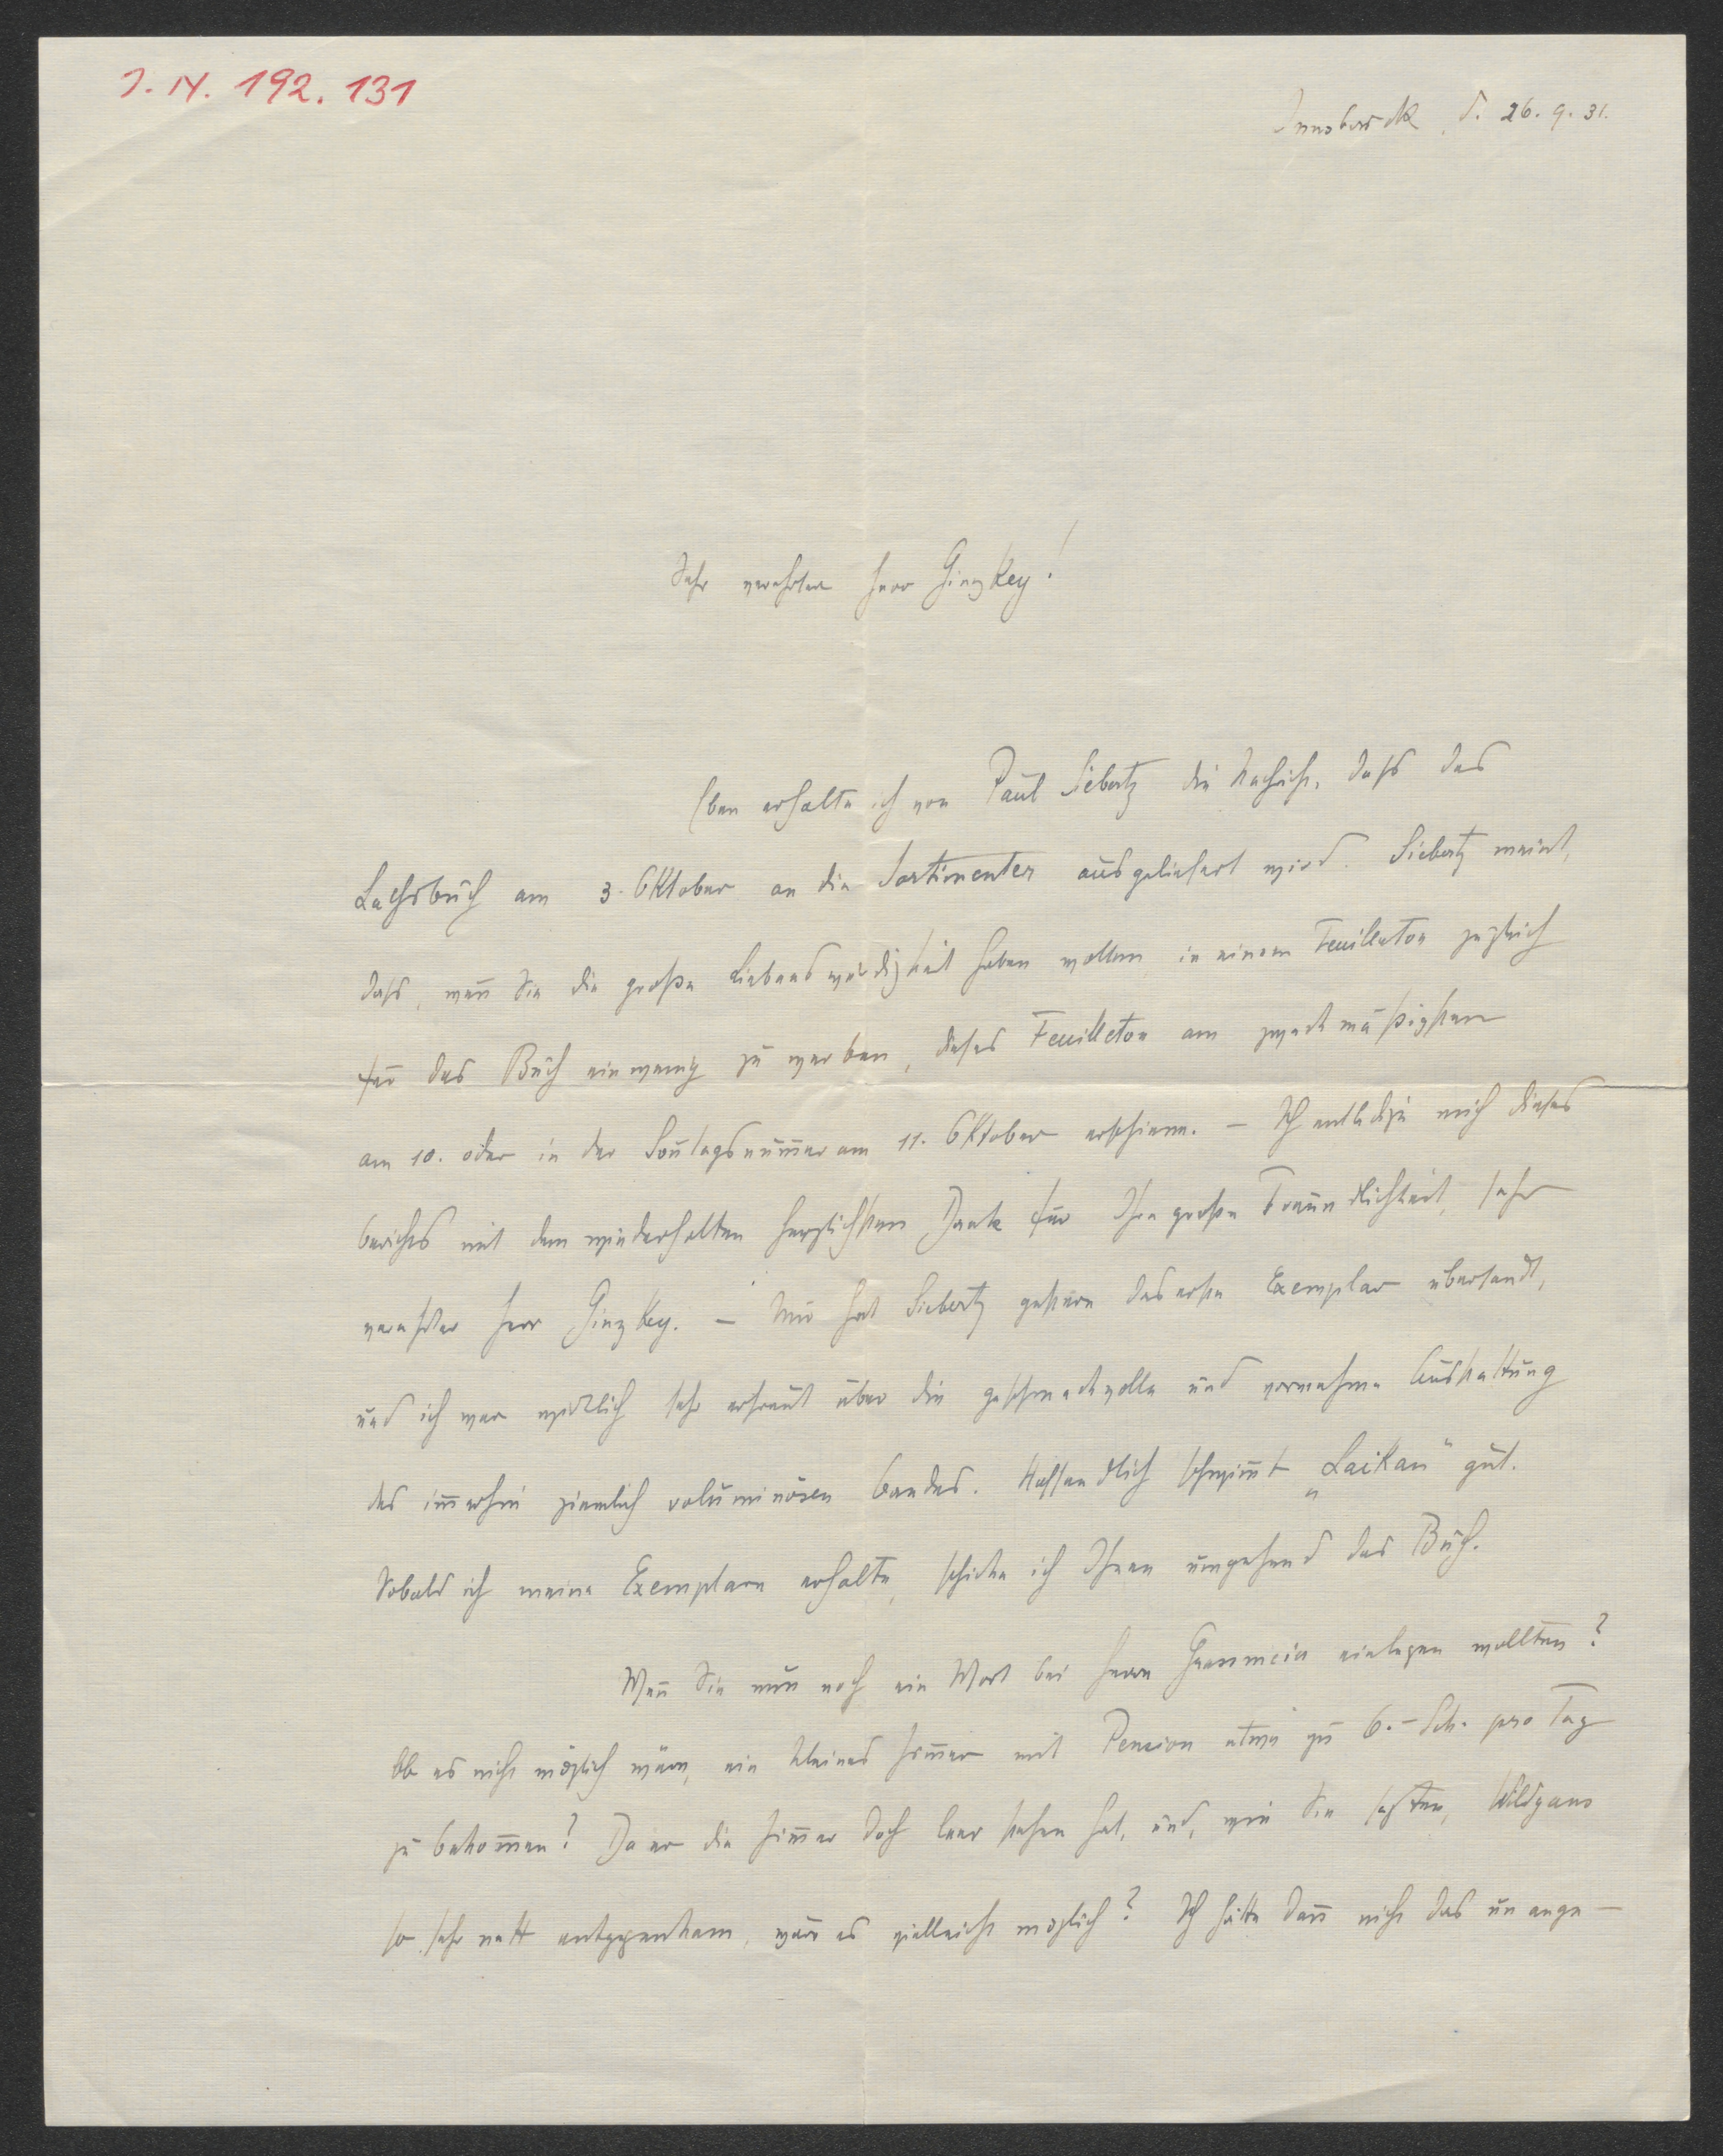 I. N. 192.131
Innsbruck, d. 26. 9. 31.
Sehr verehrter Herr Ginzkey!
Eben erhalte ich von Paul Siebertz die Nachricht, dass das
Lachsbuch am 3. Oktober an die Sortimenter ausgeliefert wird. Siebertz meint,
dass, wenn Sie die große Liebenswürdigkeit haben wollen, in einem Feuilleton
für das Buch ein wenig zu werben, dieses Feuilleton am zweckmäßigsten
am 10. oder in der Sonntagsnummer am 11. Oktober erschiene. – Ich entledige mich dieses
Berichts mit dem wiederholten herzlichsten Dank für Ihre große Freundlichkeit, sehr
verehrter Herr Ginzkey. – Mir hat Siebertz gestern das erste Exemplar übersandt,
und ich war wirklich sehr erfreut über die geschmackvolle und vornehme Ausstattung
des immerhin ziemlich voluminösen Bandes. Hoffentlich schwimmt „Laikan" gut.
Sobald ich meine Exemplare erhalte, schicke ich Ihnen umgehend das Buch.
Wenn Sie nun noch ein Wort bei Herrn einlegen wollten?
Ob es nicht möglich wäre, ein kleines Zimmer mit Pension etwa zu 6.– Sch. pro Tag
zu bekommen? Da er die Zimmer doch leer stehen hat, und, wie Sie sagten, Wildgans
so sehr nett entgegenkam, wäre es vielleicht möglich? Ich hätte dann nicht das unange-